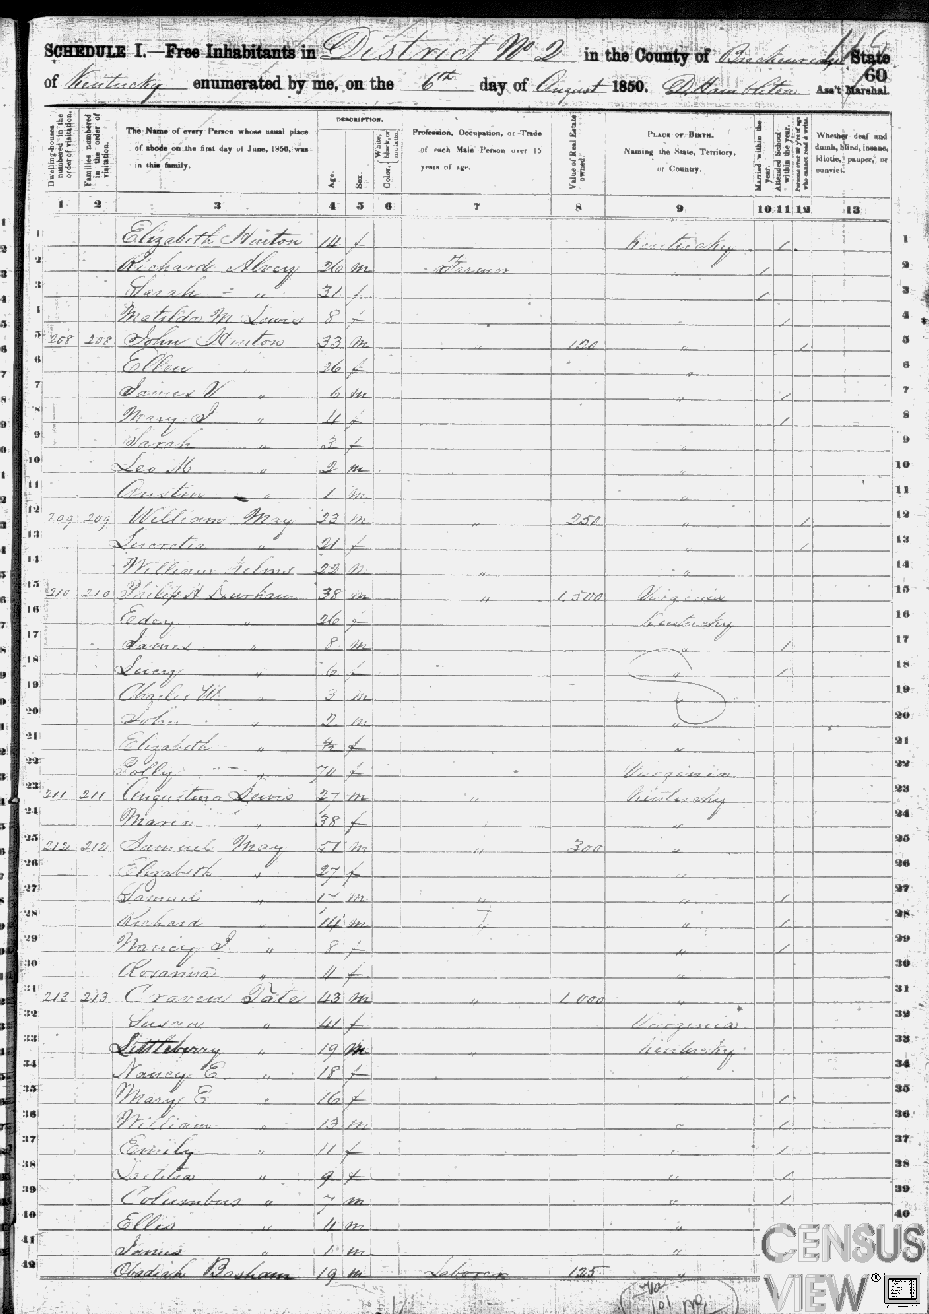 SCHEDULE I.—Free Inhabitants in District No 2 in the County of Breckenridge State
of Kentucky enumerated by me, on the 6th day of August 1850. Ass't Marshal.
60
DESCRIPTION.
Dwelling-houses numbered in the order of visitation.
Families numbered in the order of visitation.
The Name of every Person whose usual place of abode on the first day of June, 1850, was in this family.
Age.
Sex.
Color, White, black, or mulatto.
Profession, Occupation, or Trade of each Male Person over 15 years of age.
Value of Real Estate owned.
PLACE OF BIRTH. Naming the State, Territory, or Country.
Married within the year.
Attended School within the year.
Whether deaf and dumb, blind, insane, idiotic, pauper, or convict.
1 2 3 4 5 6 7 8 9 10 11 12 13
1 Elizabeth Hinton 14 f Kentucky 1 1
2 Richard Alvey 26 m Farmer " 1 2
3 Sarah " 31 f " 1 3
4 Matilda M Lewis 8 f " 1 4
5 208 208 John Hinton 33 m " 100 " 1 5
6 Ellen 26 f " 6
7 James V " 6 m " 1 7
8 Mary J " 4 f " 1 8
9 Sarah " 3 f " 9
10 Leo M " 2 m " 10
11 Austin " 1 m " 11
12 209 209 William May 23 m " 250 " 1 12
13 Lucretia " 21 f " 1 13
14 William 22 m " " 14
15 210 210 Philip H Durham 38 m " 1,500 Virginia 15
16 Edey " 26 f Kentucky 16
17 James " 8 m " 1 17
18 Lucy " 6 f " 1 18
19 Charles W " 3 m " 19
20 John " 2 m " 20
21 Elizabeth " f " 21
22 Polly " 70 f Virginia 22
23 211 211 Augustine Lewis 27 m " Kentucky 23
24 " 38 f " 24
25 212 212 Samuel May 51 m " 300 " 25
26 Elizabeth " 27 f " 26
27 Samuel " m " " 1 27
28 Richard " 14 m " 1 28
29 Nancy J " 8 f " 1 29
30 Rosanna " 4 f " 30
31 213 213 Craven Tate 43 m " 1,000 " 31
32 Susan " 41 f Virginia 32
33 Littleberry " 19 m " Kentucky 33
34 Nancy E " 18 f " 34
35 Mary E " 16 f " 1 35
36 William " 13 m " 1 36
37 Emily " 11 f " 1 37
38 " 9 f " 1 38
39 Columbus " 7 m " 1 39
40 Ellis " 4 m " 40
41 James " 1 m " 41
42 Obadiah Basham 19 m Laborer 125 "
CENSUS
VIEW®